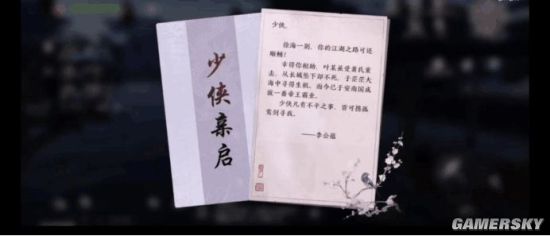 少侠亲启
少侠，
徐海一别，你的江湖之路可还
顺畅？
幸得你相助，叶某虽受萧氏重
击，从长城坠下却不死，于茫茫大
海中寻得生机，而今已于安南国成
就一番帝王霸业。
少侠凡有不平之事，皆可携孤
鸾剑寻我。
——李公蕴
GAMERSKY